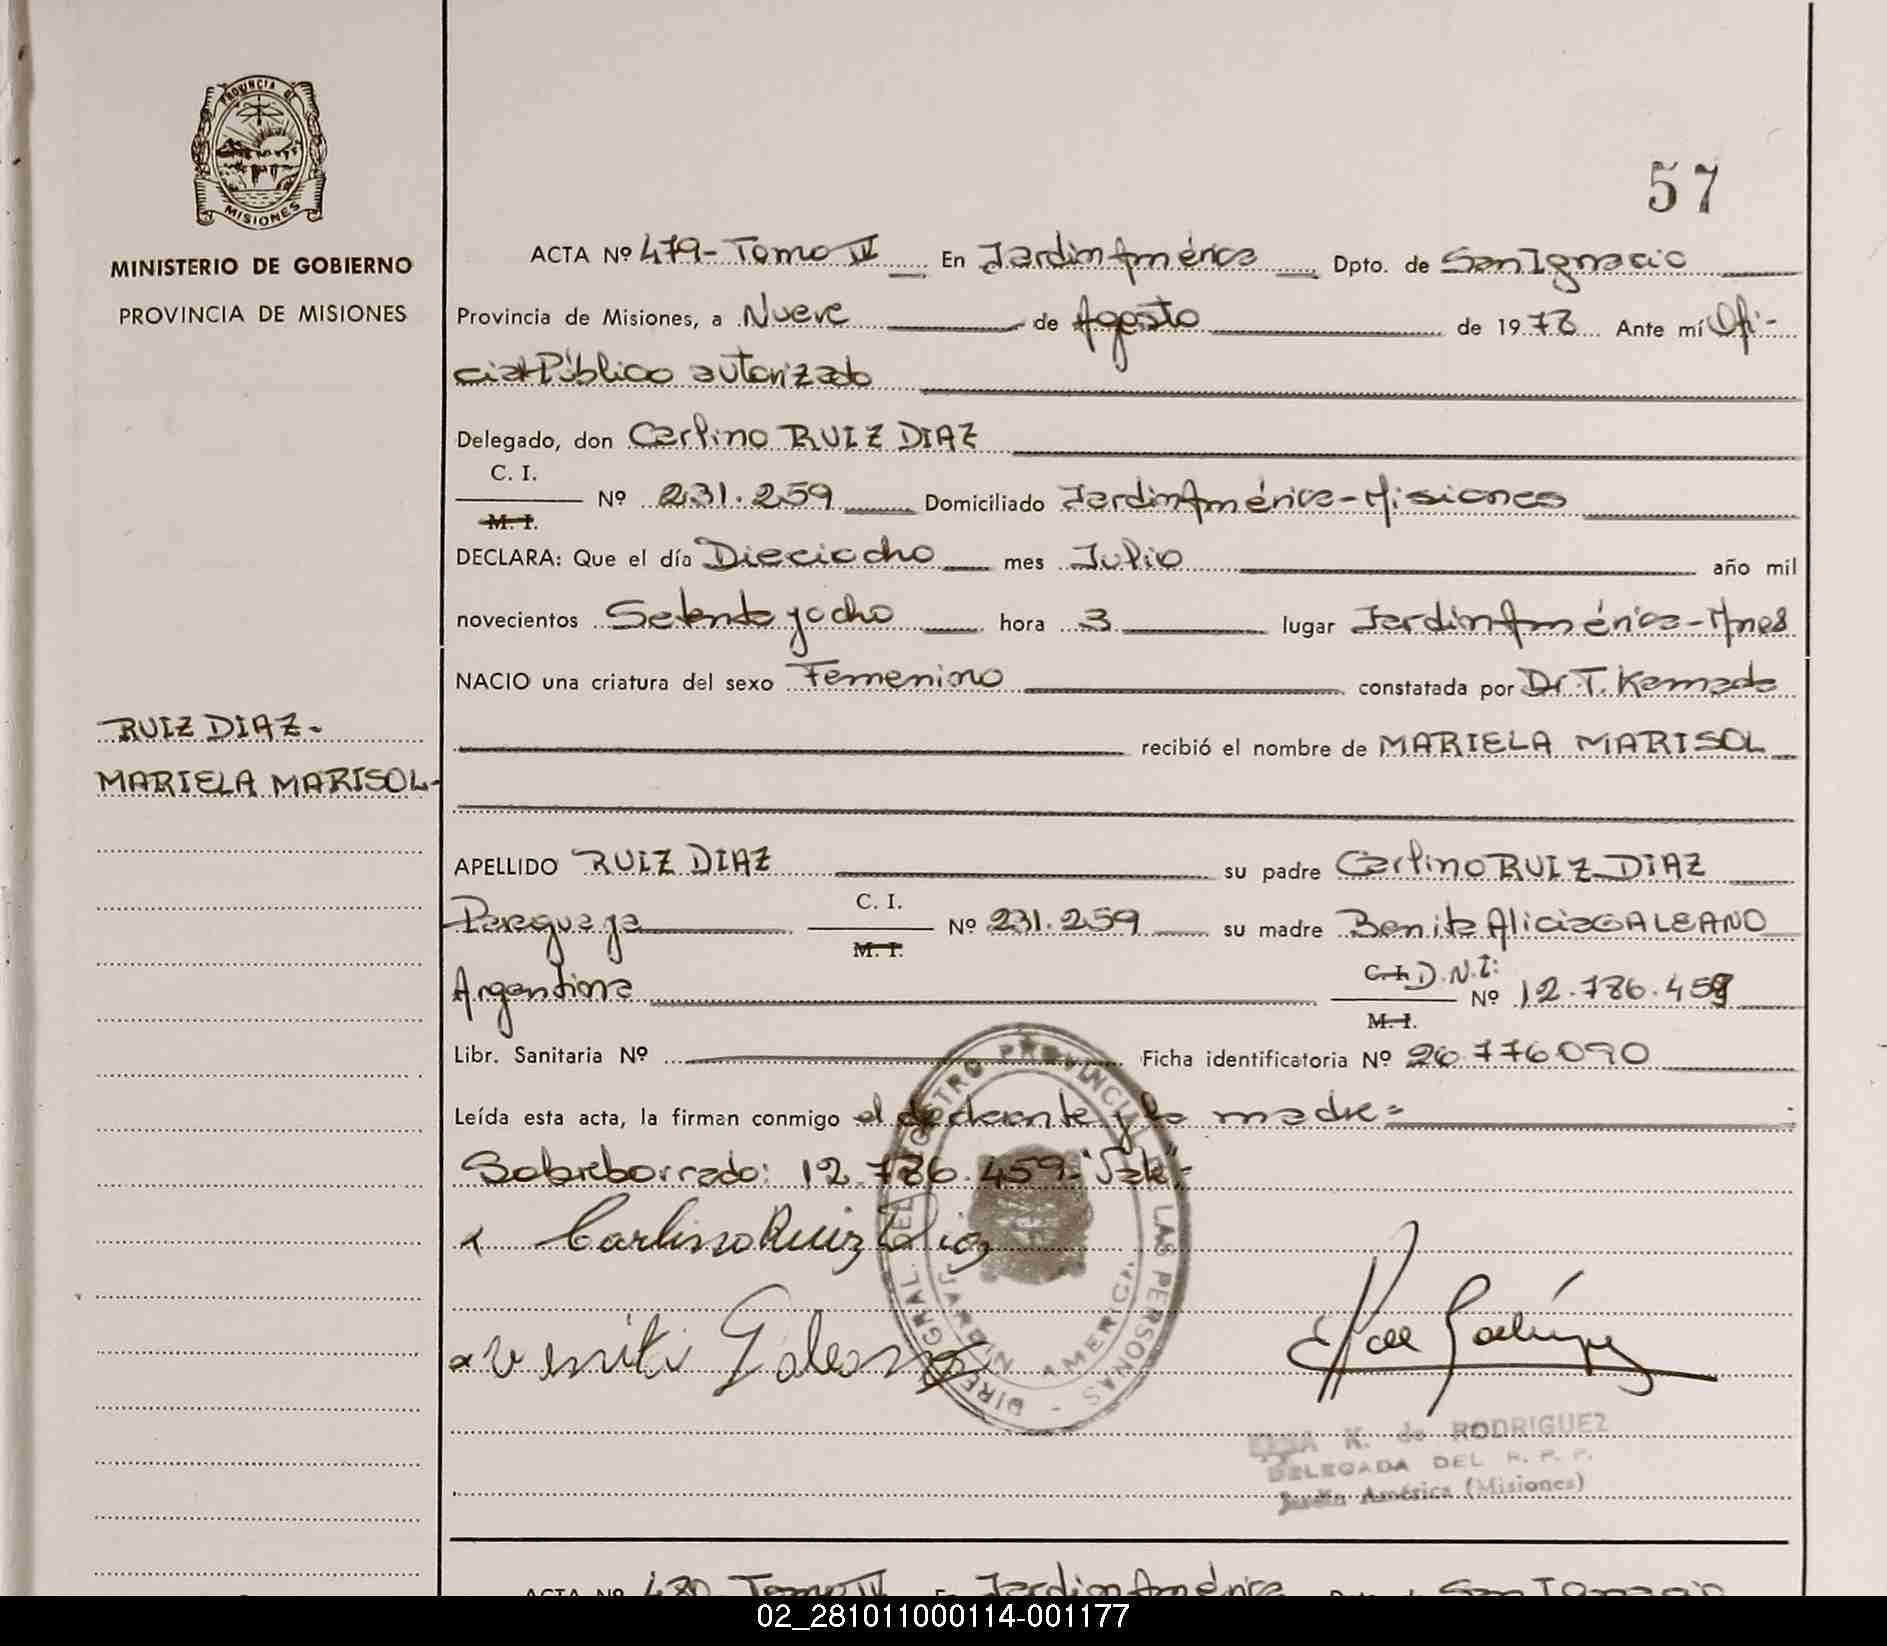 PROVINCIA DE
MISIONES
MINISTERIO DE GOBIERNO
PROVINCIA DE MISIONES
RUIZ DIAZ-
MARIELA MARISOL-
57
ACTA Nº 479- Tomo IV En Jardin América Dpto. de San Ignacio
Provincia de Misiones, a Nueve de Agosto de 1978 Ante mí Ofi-
cial Público autorizado
Delegado, don Carlino RUIZ DIAZ
C. I.
M. I.
Nº 231.259 Domiciliado Jardin América-Misiones
DECLARA: Que el día Dieciocho mes Julio año mil
novecientos Setenta y ocho hora 3 lugar Jardin América-Mnes
NACIO una criatura del sexo Femenino constatada por Dr. T. Kamada
recibió el nombre de MARIELA MARISOL
APELLIDO RUIZ DIAZ su padre Carlino RUIZ DIAZ
Paraguaya C. I. M. I. Nº 231.259 su madre Benita Alicia GALEANO
Argentina C. I. D.N.I: M. I. Nº 12.786.459
Libr. Sanitaria Nº Ficha identificatoria Nº 26.776.090
Leída esta acta, la firman conmigo el declarante y la madre=
Sobreborrado: 12.786.459-"Vale"=
Carlino Ruiz Diaz
Galeano
DIREC. GRAL. DEL REGISTRO PROVINCIAL DE LAS PERSONAS -
JARDIN AMERICA
K. de RODRIGUEZ
DELEGADA DEL R. P. P.
Jardín América (Misiones)
ACTA Nº 480 Tomo IV En Jardin América Dpto. de San Ignacio
02_281011000114-001177